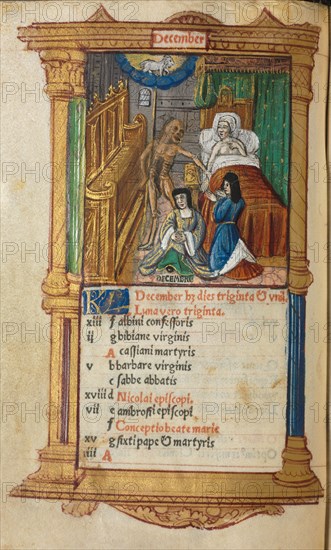 December
DECEMBRE
December hz dies triginta & vnū
Luna vero triginta.
xiii f albini confessoris
ij g bibiane virginis
A cassiani martyris
v b barbare virginis
c sabbe abbatis
xviii d Nicolai episcopi.
vii e ambrosii episcopi
f Conceptio beate marie
xv g sixti pape & martyris
iiii A